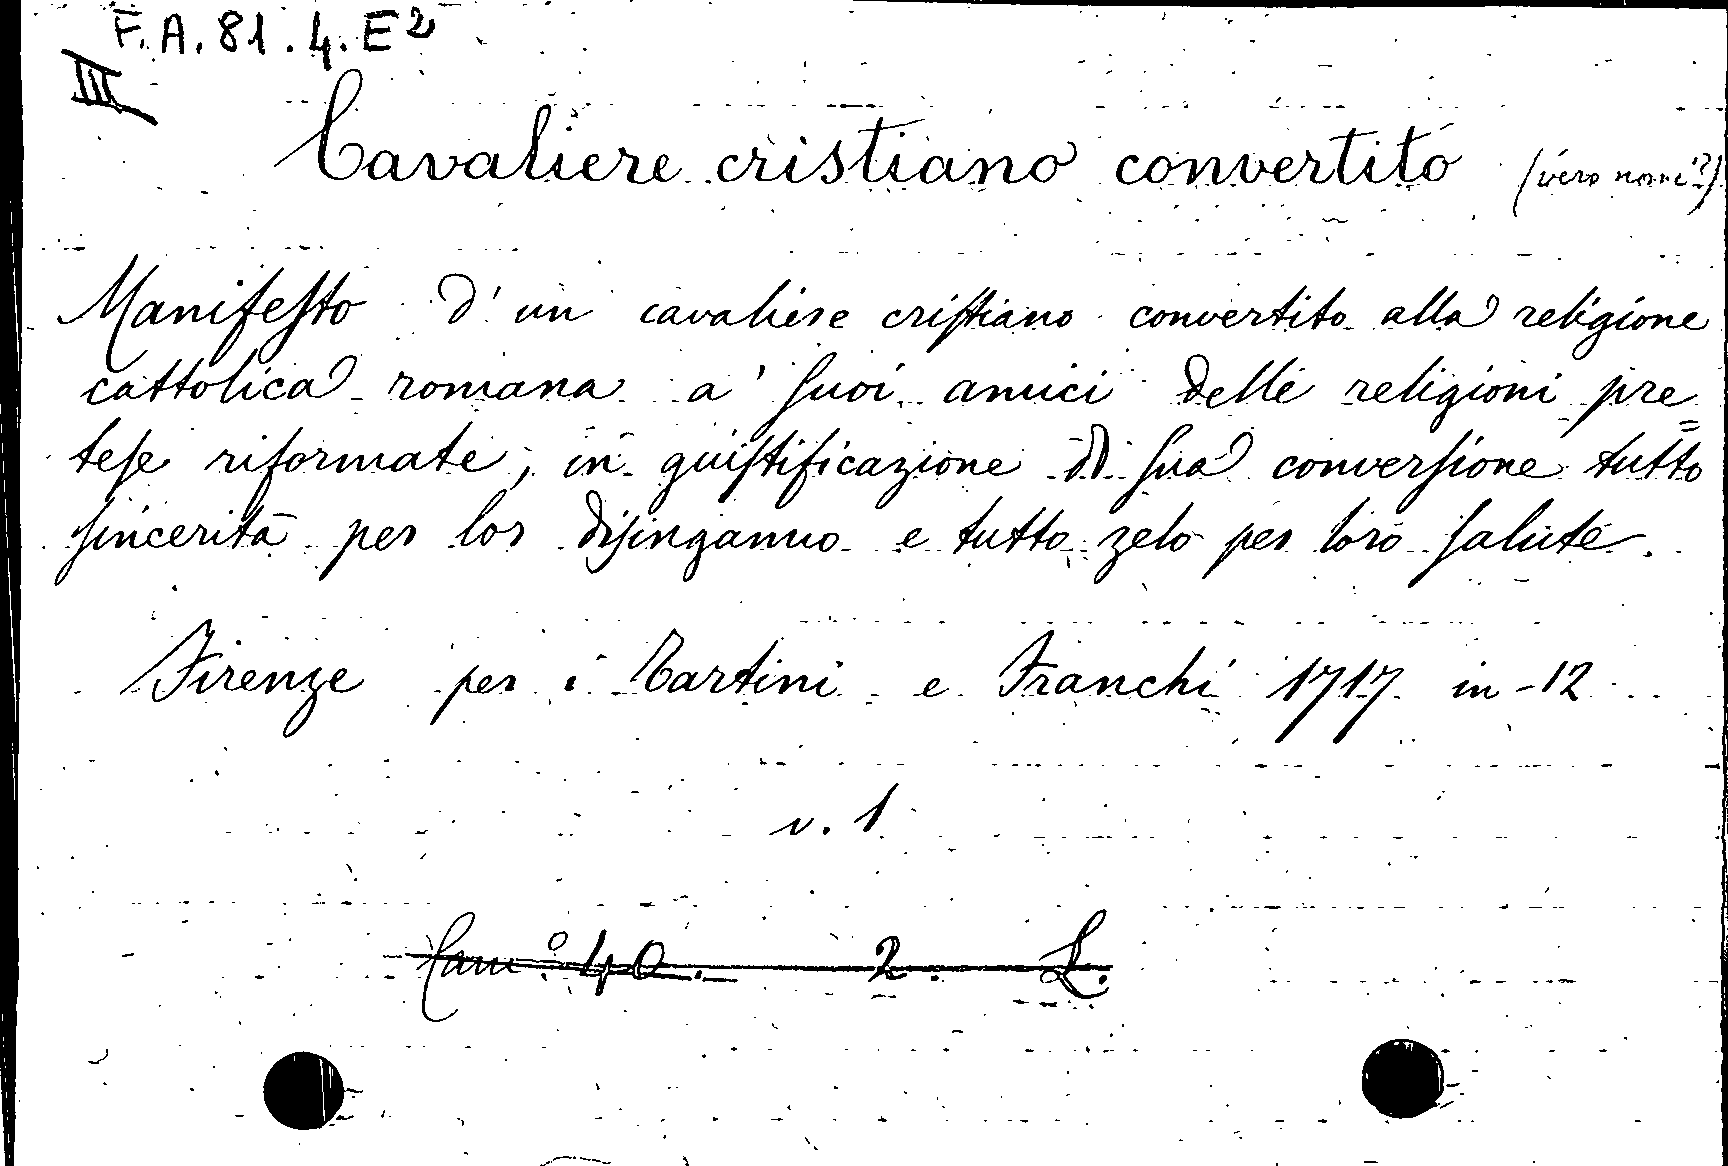 F. A. 81. 4. E2
III
Cavaliere cristiano convertito (vero nome?)
Manifesto d'un cavaliere cristiano convertito alla religione
cattolica romana a' suoi amici delle religioni pre=
tese riformate, in giustificazione di sua conversione tutto
sincerità per lor disinganno e tutto zelo per loro salute.
Firenze per i Tartini e Franchi 1717 in-12
v. 1
Cam.° 40. 2. L.